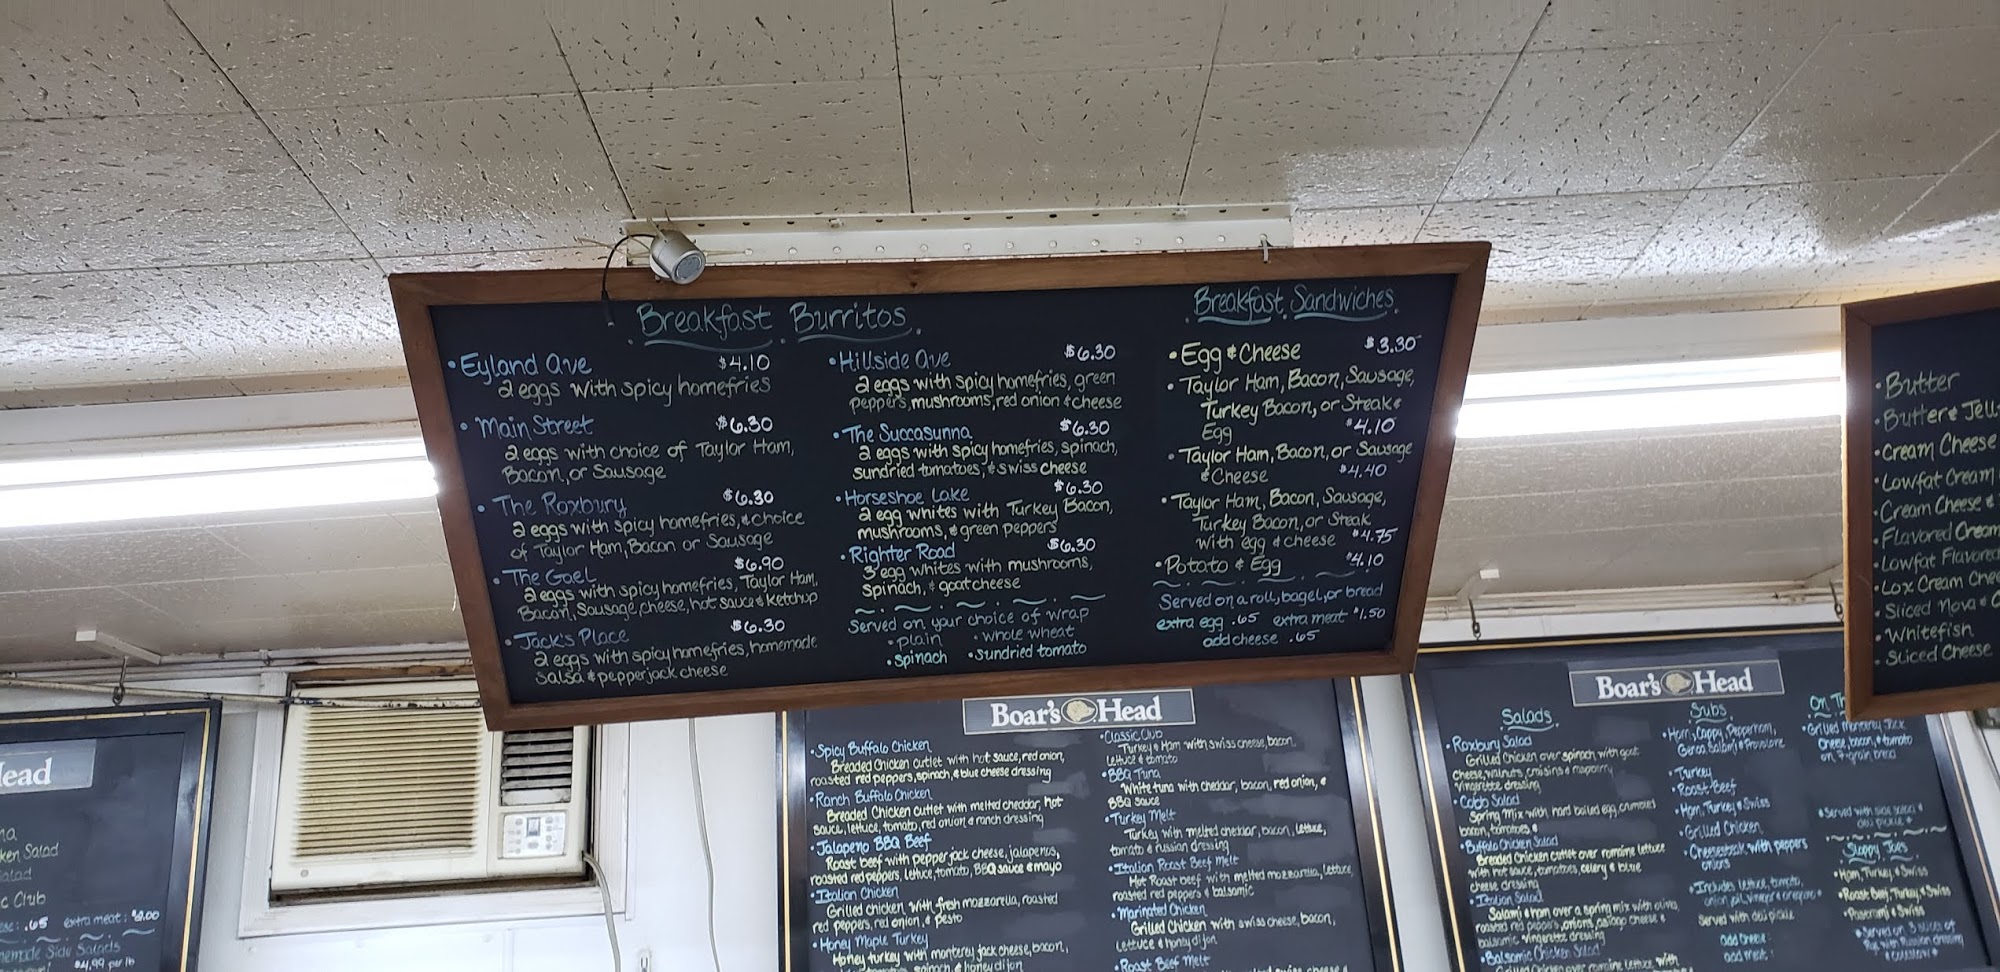 Breakfast Burritos
• Eyland Ave $4.10
2 eggs with spicy homefries
• Main Street $6.30
2 eggs with choice of Taylor Ham,
Bacon, or Sausage
• The Roxbury $6.30
2 eggs with spicy homefries, & choice
of Taylor Ham, Bacon or Sausage
• The Gael $6.90
2 eggs with spicy homefries, Taylor Ham,
Bacon, Sausage, cheese, hot sauce & ketchup
• Jack's Place $6.30
2 eggs with spicy homefries, homemade
salsa & pepperjack cheese
• Hillside Ave $6.30
2 eggs with spicy homefries, green
peppers, mushrooms, red onion & cheese
• The Succasunna $6.30
2 eggs with spicy homefries, spinach,
sundried tomatoes, & swiss cheese
• Horseshoe Lake $6.30
2 egg whites with Turkey Bacon,
mushrooms, & green peppers
• Righter Road $6.30
3 egg whites with mushrooms,
spinach, & goat cheese
Served on your choice of wrap
• plain • whole wheat
• spinach • sundried tomato
Breakfast Sandwiches
• Egg & Cheese $3.30
• Taylor Ham, Bacon, Sausage,
Turkey Bacon, or Steak &
Egg $4.10
• Taylor Ham, Bacon, or Sausage
& Cheese $4.40
• Taylor Ham, Bacon, Sausage,
Turkey Bacon, or Steak
with egg & cheese $4.75
• Potato & Egg $4.10
Served on a roll, bagel, or bread
extra egg .65 extra meat $1.50
add cheese .65
• Butter
• Butter & Jell
• Cream Cheese
• Lowfat Cream
• Cream Cheese &
• Flavored Cream
• Lowfat Flavored
• Lox Cream Chee
• Sliced Nova &
• Whitefish
• Sliced Cheese
ead
ken Salad
alad
c Club
.65 extra meat: $2.00
Side Salads
$4.99 per lb
Boar's Head
• Spicy Buffalo Chicken
Breaded Chicken cutlet with hot sauce, red onion,
roasted red peppers, spinach, & blue cheese dressing
• Ranch Buffalo Chicken
Breaded Chicken cutlet with melted cheddar, hot
sauce, lettuce, tomato, red onion & ranch dressing
• Jalapeno BBQ Beef
Roast beef with pepper jack cheese, jalapenos,
roasted red peppers, lettuce, tomato, BBQ sauce & mayo
• Italian Chicken
Grilled chicken with fresh mozzarella, roasted
red peppers, red onion, & pesto
• Honey Maple Turkey
Honey turkey with monterey jack cheese, bacon,
spinach, & honey dijon
• Classic Club
Turkey & Ham with swiss cheese, bacon,
lettuce & tomato
• BBQ Tuna
White tuna with cheddar, bacon, red onion, &
BBQ sauce
• Turkey Melt
Turkey with melted cheddar, bacon, lettuce,
tomato & russian dressing
• Italian Roast Beef Melt
Hot Roast beef with melted mozzarella, lettuce,
roasted red peppers & balsamic
• Marinated Chicken
Grilled Chicken with swiss cheese, bacon,
lettuce & honey dijon
• Roast Beef Melt
Boar's Head
Salads
• Roxbury Salad
Grilled Chicken over spinach with goat
cheese, walnuts, craisins & raspberry
vinegrette dressing
• Cobb Salad
Spring Mix with hard boiled egg, crumbled
bacon, tomatoes &
• Buffalo Chicken Salad
Breaded Chicken cutlet over romaine lettuce
with hot sauce, tomatoes, celery & blue
cheese dressing
• Italian Salad
Salami & ham over a spring mix with olives
roasted red peppers, onions, asiago cheese &
balsamic vinegrette dressing
• Balsamic Chicken Salad
Grilled Chicken over romaine lettuce with
Subs
• Ham, Cappy, Pepperham,
Genoa Salami & Provolone
• Turkey
• Roast Beef
• Ham, Turkey & Swiss
• Grilled Chicken
• Cheesesteak with peppers
onions
• Includes lettuce, tomato,
onion, oil, vinegar & oregano
Served with deli pickle
add cheese:
add meat:
On Th
• Grilled Monterey Jack
Cheese, bacon, & tomato
on 7-grain bread
• Served with side salad &
deli pickle
Sloppy Joes
• Ham, Turkey & Swiss
• Roast Beef, Turkey & Swiss
• Pastrami & Swiss
• Served on 3 slices of
Rye with Russian dressing
& coleslaw